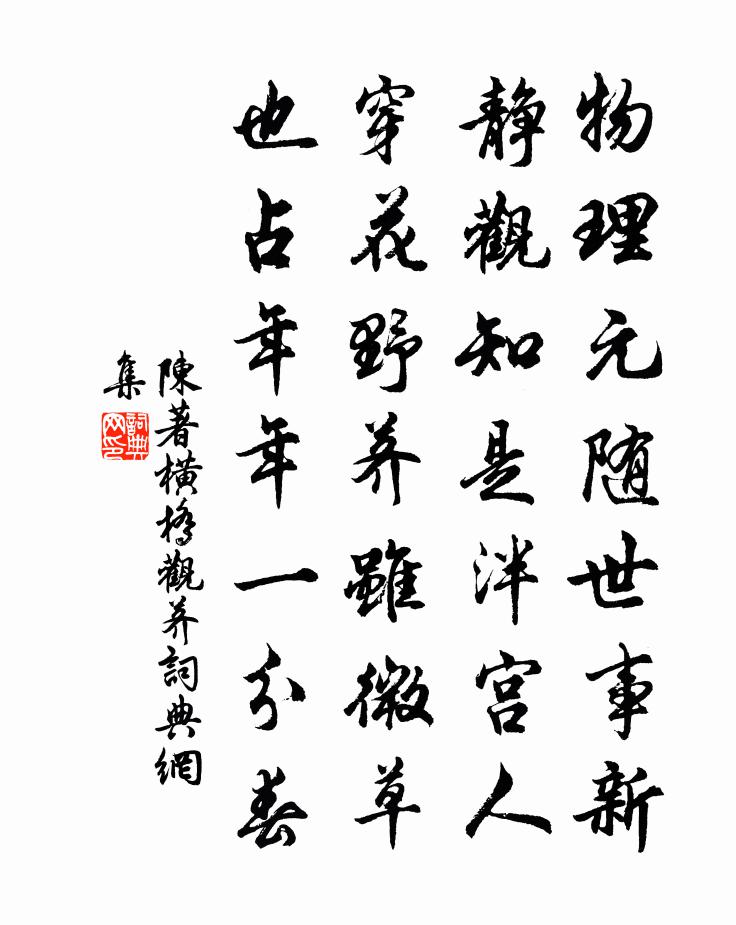 物理元随世事新
静觀知是泮宫人
穿花野荠雖微草
也占年年一分春
陳著横橋觀荠詞典網
集
詞典
网印